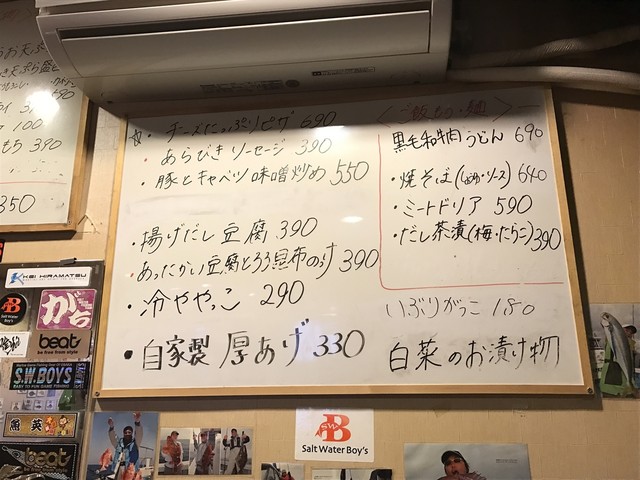 390
100
390
350
☆・チーズたっぷりピザ 690
・あらびきソーセージ 390
・豚とキャベツ味噌炒め 550
・揚げだし豆腐 390
・あったかい豆腐とろろ昆布のつけ 390
・冷ややっこ 290
・自家製 厚あげ 330
<ご飯もの・麺>
黒毛和牛肉うどん 690
・焼そば(しょうゆ・ソース) 640
・ミートドリア 590
・だし茶漬(梅・たらこ) 390
いぶりがっこ 180
白菜のお漬け物
KEI HIRAMATSU
B
Salt Water Boy's
がち
beat
be free from style
S.W.BOYS
魚英
beat
SW
B
Salt Water Boy's